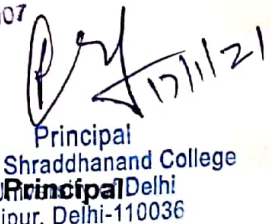 07
17/1/21
Principal
Shraddhanand College
Principal Delhi
ipur, Delhi-110036